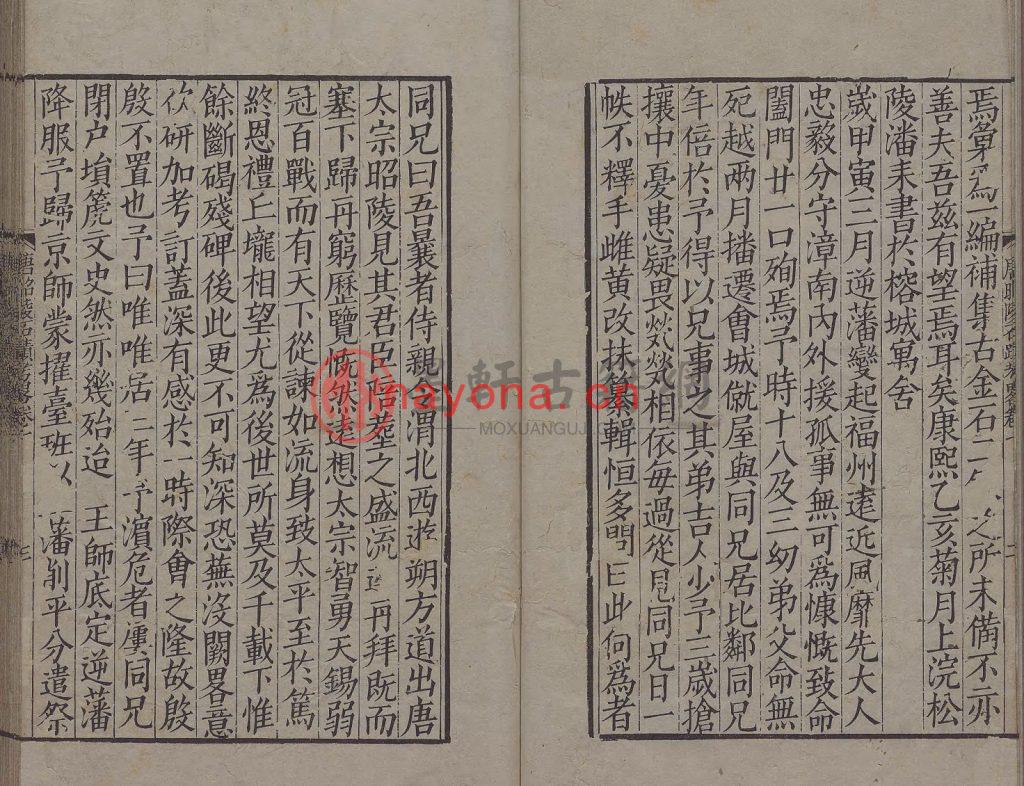 焉彙為一編補集古金石二
之所未備不亦
善夫吾兹有望焉耳矣康熙乙亥菊月上浣松
陵潘耒書於榕城寓舍
歲甲寅三月逆藩變起福州遠近風靡先大人
忠毅分守漳南內外援孤事無可為慷慨致命
闔門廿一口殉焉予時十八及三幼弟父命無
死越兩月播遷會城僦屋與同兄居比鄰同兄
年倍於予得以兄事之其弟吉人少予三歲搶
攘中憂患疑畏煢煢相依每過從見同兄日一
帙不釋手雌黃改抹纂輯恒多問曰此何為者
同兄曰吾曩者侍親合渭北西遊朔方道出唐
太宗昭陵見其君臣陪葬之盛流
再拜既而
塞下歸再窮歷覽慨然遠想太宗智勇天錫弱
冠百戰而有天下從諫如流身致太平至於篤
終恩禮丘壠相望尤為後世所莫及千載下惟
餘斷碣殘碑後此更不可知深恐蕪沒闕畧意
欲研加考訂蓋深有感於一時際會之隆故殷
殷不置也予曰唯唯居二年予濵危者屢同兄
閉户塤篪文史然亦幾殆迨 王師底定逆藩
降服予歸京師蒙擢臺班以
藩削平分遣祭
唐昭陵石蹟考畧卷一
二
唐昭陵石蹟考畧卷一
三
墨軒古籍通
nayona.cn
MOXUANGUJI